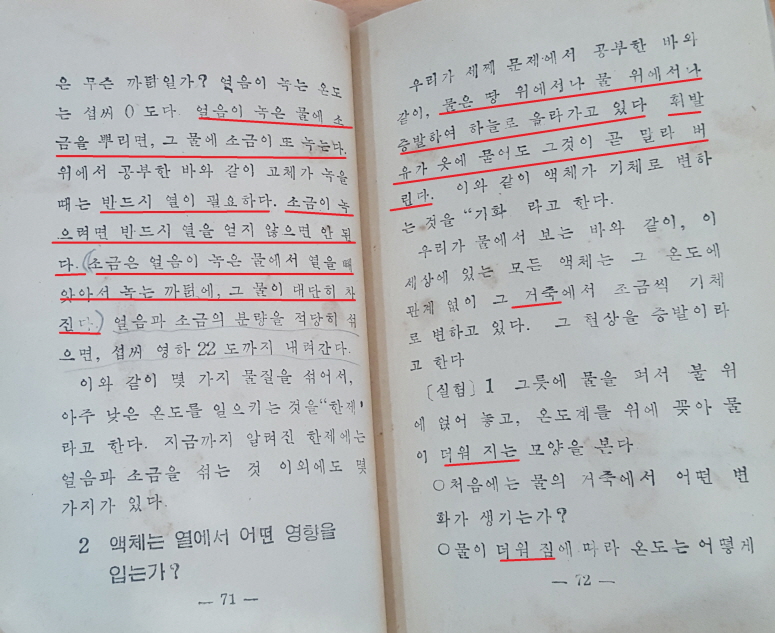 은 무슨 까닭일가? 얼음이 녹는 온도
는 섭씨 0 도다. 얼음이 녹은 물에 소
금을 뿌리면, 그 물에 소금이 또 녹는다.
위에서 공부한 바와 같이 고체가 녹을
때는 반드시 열이 필요하다. 소금이 녹
으려면 반드시 열을 얻지 않으면 안 된
다. (소금은 얼음이 녹은 물에서 열을 빼
앗아서 녹는 까닭에, 그 물이 대단히 차
진다.) 얼음과 소금의 분량을 적당히 섞
으면, 섭씨 영하 22 도까지 내려간다.
이와 같이 몇 가지 물질을 섞어서,
아주 낮은 온도를 일으키는 것을 “한제”
라고 한다. 지금까지 알려진 한제에는
얼음과 소금을 섞는 것 이외에도 몇
가지가 있다.
2 액체는 열에서 어떤 영향을
입는가?
— 71 —
우리가 세째 문제에서 공부한 바와
같이, 물은 땅 위에서나 물 위에서나
증발하여 하늘로 올라가고 있다 휘발
유가 옷에 묻어도 그것이 곧 말라 버
린다. 이와 같이 액체가 기체로 변하
는 것을 “기화 라고 한다.
우리가 물에서 보는 바와 같이, 이
세상에 있는 모든 액체는 그 온도에
관계 없이 그 거죽에서 조금씩 기체
로 변하고 있다. 그 현상을 증발이라
고 한다
[실험] 1 그릇에 물을 퍼서 불 위
에 얹어 놓고, 온도계를 위에 꽂아 물
이 더워 지는 모양을 본다
○처음에는 물의 거죽에서 어떤 변
화가 생기는가?
○물이 더워 짐에 따라 온도는 어떻게
— 72 —